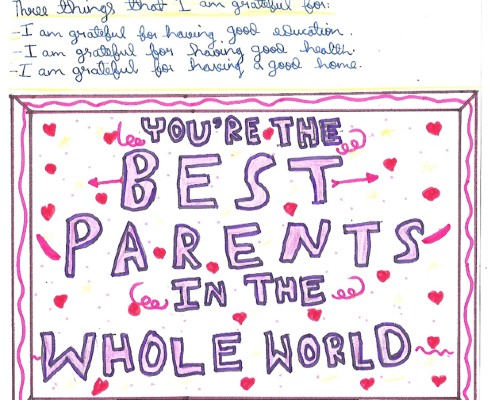 Three things that I am grateful for:
-I am grateful for having good education.
-I am grateful for having good health.
-I am grateful for having a good home.
YOU'RE THE
BEST
PARENTS
IN THE
WHOLE WORLD